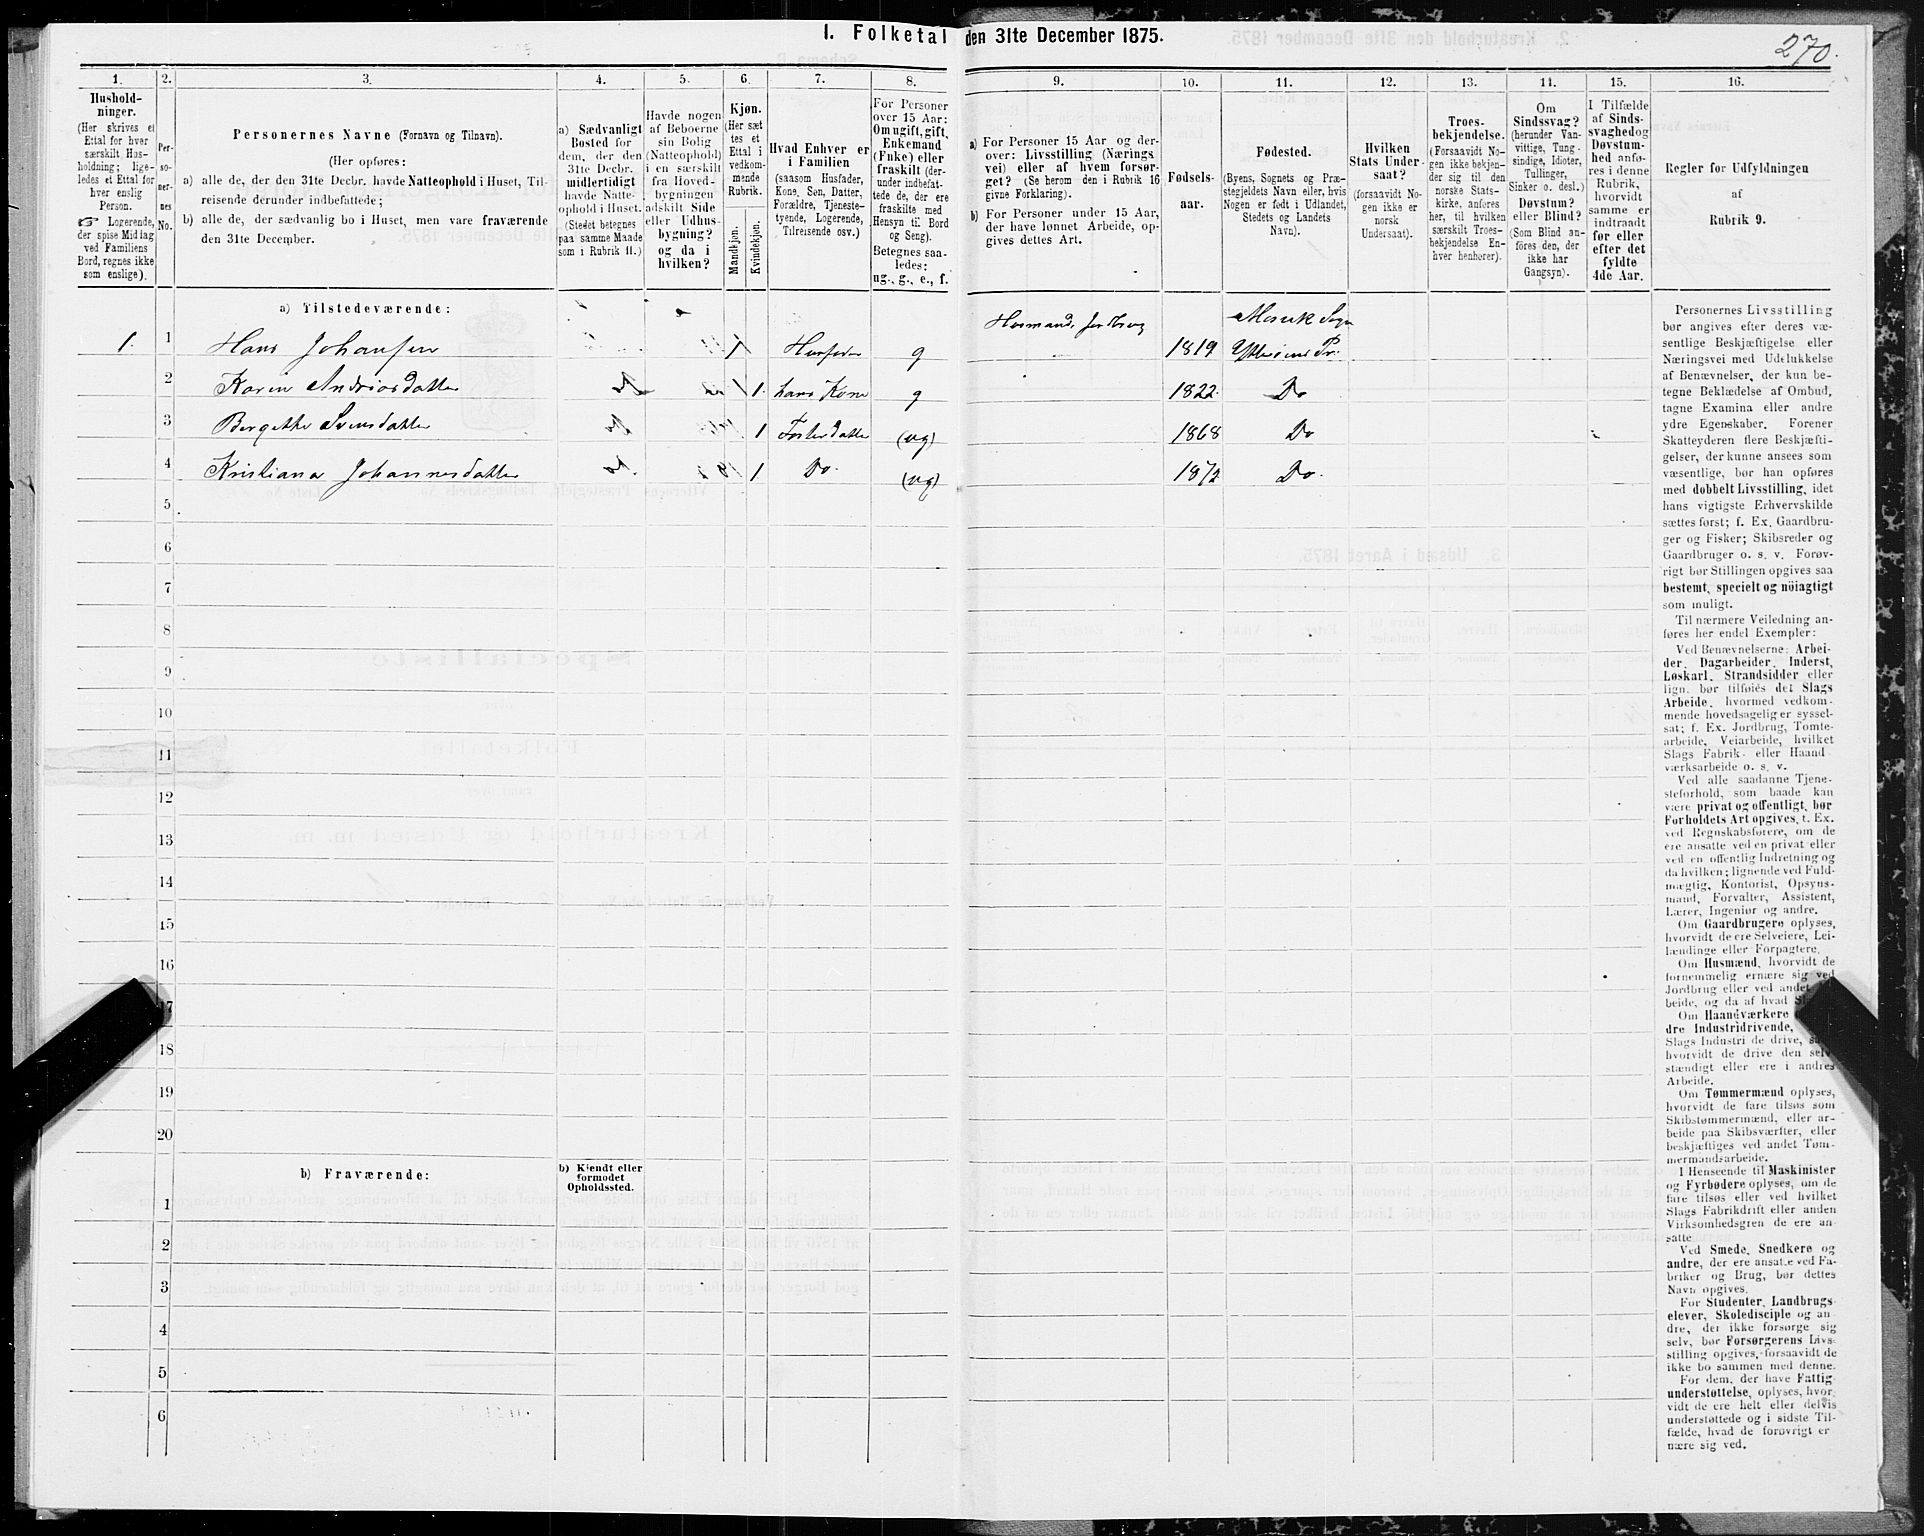 1. Folketal den 31te December 1875.
270.
1. 2. 3. 4. 5. 6. 7. 8. 9. 10. 11. 12. 13. 14. 15. 16.
Hushold-
ninger.
(Her skrives et
Ettal for hver
særskilt Hus-
holdning; lige-
ledes et Ettal for
hver enslig
Person.
☞ Logerende,
der spise Middag
ved Familiens
Bord, regnes ikke
som enslige).
Per-
so-
ner-
nes
No.
Personernes Navne (Fornavn og Tilnavn).
(Her opføres:
a) alle de, der den 31te Decbr. havde Natteophold i Huset, Til-
reisende derunder indbefattede;
b) alle de, der sædvanlig bo i Huset, men vare fraværende
den 31te December.
a) Sædvanligt
Bosted for
dem, der den
31te Decbr.
midlertidigt
havde Natte-
ophold i Huset.
(Stedet betegnes
paa samme Maade
som i Rubrik 11.)
Havde nogen
af Beboerne
sin Bolig
(Natteophold)
i en særskilt
fra Hoved-
bygningen
adskilt Side
eller Udhus-
bygning?
og da i
hvilken?
Kjøn.
(Her sæt
tes et
Ettal i
vedkom-
mende
Rubrik.
Mandkjøn.
Kvindekjøn.
Hvad Enhver er
i Familien
(saasom Husfader,
Kone, Søn, Datter,
Forældre, Tjeneste-
tyende, Logerende,
Tilreisende osv.)
For Personer
over 15 Aar:
Om ugift, gift,
Enkemand
(Enke) eller
fraskilt (der-
under indbefat-
tede de, der ere
fraskilte med
Hensyn til Bord
og Seng).
Betegnes saa-
ledes:
ug., g., e., f.
a) For Personer 15 Aar og der-
over: Livsstilling (Nærings
vei) eller af hvem forsør-
get? (Se herom den i Rubrik 16
givne Forklaring).
b) For Personer under 15 Aar,
der have lønnet Arbeide, op-
gives dettes Art.
Fødsels-
aar.
Fødested.
(Byens, Sognets og Præ-
stegjeldets Navn eller, hvis
Nogen er født i Udlandet,
Stedets og Landets
Navn).
Hvilken
Stats Under-
saat?
(forsaavidt No-
gen ikke er
norsk
Undersaat).
Troes-
bekjendelse.
(Forsaavidt No-
gen ikke bekjen-
der sig til den
norske Stats-
kirke, anføres
her, til hvilken
særskilt Troes-
bekjendelse En-
hver henhører).
Om
Sindssvag?
(herunder Van-
vittige, Tung-
sindige, Idioter,
Tullinger,
Sinker o. desl.)
Døvstum?
eller Blind?
(Som Blind an-
føres den, der
ikke har
Gangsyn).
I Tilfælde
af Sinds-
svaghed og
Døvstum-
hed anfø-
res i denne
Rubrik,
hvorvidt
samme er
indtraadt
før eller
efter det
fyldte
4de Aar.
Regler for Udfyldningen
af
Rubrik 9.
a) Tilstedeværende:
1. 1 Hans Johansen 1 Husfader g Husmand, Jordbrug 1819 Sogn
2 Karen 1 hans Kone g 1822 Do
3 Bergethe Svensdatter 1 Fosterdatter (ug) 1868 Do
4 Kristiana Johannesdatter 1 Do. (ug) 1872 Do.
5
6
7
8
9
10
11
12
13
14
15
16
17
18
19
20
b) Fraværende:
b) Kjendt eller
formodet
Opholdssted.
1
2
3
4
5
6
Personernes Livsstilling
bør angives efter deres væ-
sentlige Beskjæftigelse eller
Næringsvei med Udelukkelse
af Benævnelser, der kun be-
tegne Beklædelse af Ombud,
tagne Examina eller andre
ydre Egenskaber. Forener
Skatteyderen flere Beskjæfti-
gelser, der kunne ansees som
væsentlige, bør han opføres
med dobbelt Livsstilling, idet
hans vigtigste Erhvervskilde
sættes først; f. Ex. Gaardbru-
ger og Fisker; Skibsreder og
Gaardbruger o. s. v. Forøv-
rigt bør Stillingen opgives saa
bestemt, specielt og nöiagtigt
som muligt.
Til nærmere Veiledning an-
føres her endel Exempler:
Ved Benævnelserne: Arbei-
der, Dagarbeider, Inderst,
Løskarl, Strandsidder eller
lign. bør tilføies det Slags
Arbeide, hvormed vedkom-
mende hovedsagelig er syssel-
sat; f. Ex. Jordbrug, Tomte-
arbeide, Veiarbeide, hvilket
Slags Fabrik- eller Haand
værksarbeide o. s. v.
Ved alle saadanne Tjene-
steforhold, som baade kan
være privat og offentligt, bør
Forholdets Art opgives, f. Ex.
ved Regnskabsførere, om de
ere ansatte ved en privat eller
ved en offentlig Indretning og
da hvilken; lignende ved Fuld-
mægtig, Kontorist, Opsyns-
mand, Forvalter, Assistent,
Lærer, Ingeniør og andre.
Om Gaardbrugere oplyses,
hvorvidt de ere Selveiere, Lei-
lændinge eller Forpagtere.
Om Husmænd, hvorvidt de
fornemmelig ernære sig ved
Jordbrug eller ved andet
beide, og da af hvad
Om Haandværkere
dre Industridrivende,
Slags Industri de drive,
hvorvidt de drive den selv
stændigt eller ere i andres
Arbeide.
Om Tømmermænd oplyses,
hvorvidt de fare tilsøs som
Skibstømmermænd, eller ar-
beide paa Skibsværfter, eller
beskjæftiges ved andet Tøm-
mermandsarbeide.
I Henseende til Maskinister
og Fyrbødere oplyses, om de
fare tilsøs eller ved hvilket
Slags Fabrikdrift eller anden
Virksomhedsgren de ere an-
satte
Ved Smede, Snedkere og
andre, der ere ansatte ved Fa-
briker og Brug, bør dettes
Navn opgives.
For Studenter, Landbrugs
elever, Skoledisciple og an-
dre, der ikke forsørge sig
selv, bør Forsørgerens Livs-
stilling opgives, forsaavidt de
ikke bo sammen med denne.
For dem, der have Fattig-
understøttelse, oplyses, hvor
vidt de ere helt eller delvis
understøttede og i sidste Til-
fælde, hvad de forøvrigt er
nære sig ved.